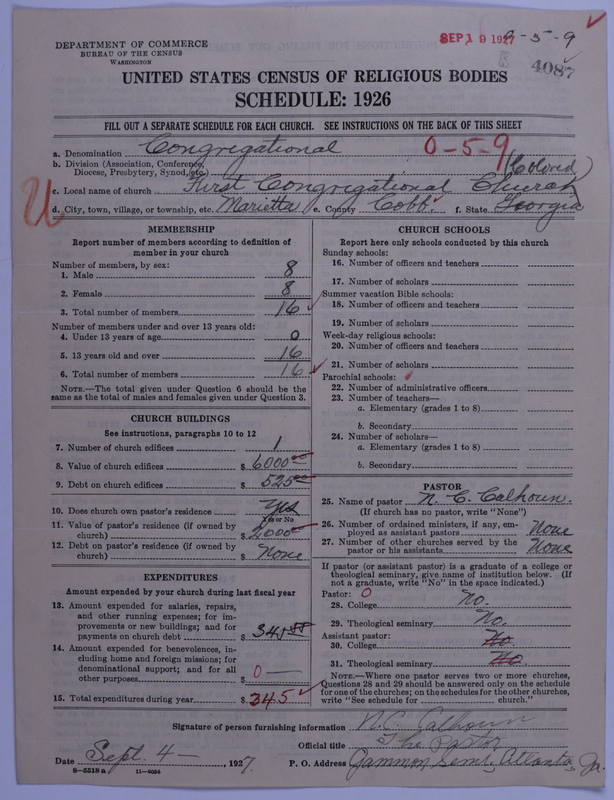 DEPARTMENT OF COMMERCE
BUREAU OF THE CENSUS
WASHINGTON
SEP 19 1927 0-5-9
4087
UNITED STATES CENSUS OF RELIGIOUS BODIES
SCHEDULE: 1926
FILL OUT A SEPARATE SCHEDULE FOR EACH CHURCH. SEE INSTRUCTIONS ON THE BACK OF THIS SHEET
a. Denomination Congregational 0-5-9
b. Division (Association, Conference, Diocese, Presbytery, Synod, etc.) (Colored)
c. Local name of church First Congregational Church
U
d. City, town, village, or township, etc. Marietta e. County Cobb f. State Georgia
MEMBERSHIP
Report number of members according to definition of
member in your church
Number of members, by sex:
1. Male 8
2. Female 8
3. Total number of members 16
Number of members under and over 13 years old:
4. Under 13 years of age 0
5. 13 years old and over 16
6. Total number of members 16
NOTE.—The total given under Question 6 should be the
same as the total of males and females given under Question 3.
CHURCH BUILDINGS
See instructions, paragraphs 10 to 12
7. Number of church edifices 1
8. Value of church edifices $ 6000 00
9. Debt on church edifices $ 525 00
10. Does church own pastor's residence Yes
Yes or No
11. Value of pastor's residence (if owned by
church) $ 2000
12. Debt on pastor's residence (if owned by
church) $ None
EXPENDITURES
Amount expended by your church during last fiscal year
13. Amount expended for salaries, repairs,
and other running expenses; for im-
provements or new buildings; and for
payments on church debt $ 345
14. Amount expended for benevolences, in-
cluding home and foreign missions; for
denominational support; and for all
other purposes $ 0
15. Total expenditures during year $ 345
CHURCH SCHOOLS
Report here only schools conducted by this church
Sunday schools:
16. Number of officers and teachers
17. Number of scholars
Summer vacation Bible schools:
18. Number of officers and teachers
19. Number of scholars
Week-day religious schools:
20. Number of officers and teachers
21. Number of scholars
Parochial schools:
22. Number of administrative officers
23. Number of teachers—
a. Elementary (grades 1 to 8)
b. Secondary
24. Number of scholars—
a. Elementary (grades 1 to 8)
b. Secondary
PASTOR
25. Name of pastor N. C. Calhoun.
(If church has no pastor, write "None")
26. Number of ordained ministers, if any, em-
ployed as assistant pastors None
27. Number of other churches served by the
pastor or his assistants None
If pastor (or assistant pastor) is a graduate of a college or
theological seminary, give name of institution below. (If
not a graduate, write "No" in the space indicated.)
Pastor: 0
28. College No.
29. Theological seminary No.
Assistant pastor:
30. College No
31. Theological seminary No
NOTE.—Where one pastor serves two or more churches,
Questions 28 and 29 should be answered only on the schedule
for one of the churches; on the schedules for the other churches,
write "See schedule for church."
Signature of person furnishing information N. C. Calhoun
Official title The Pastor
Date Sept. 4—, 1927. P. O. Address Gammon Sem., Atlanta, Ga.
8—5518 a 11—9034